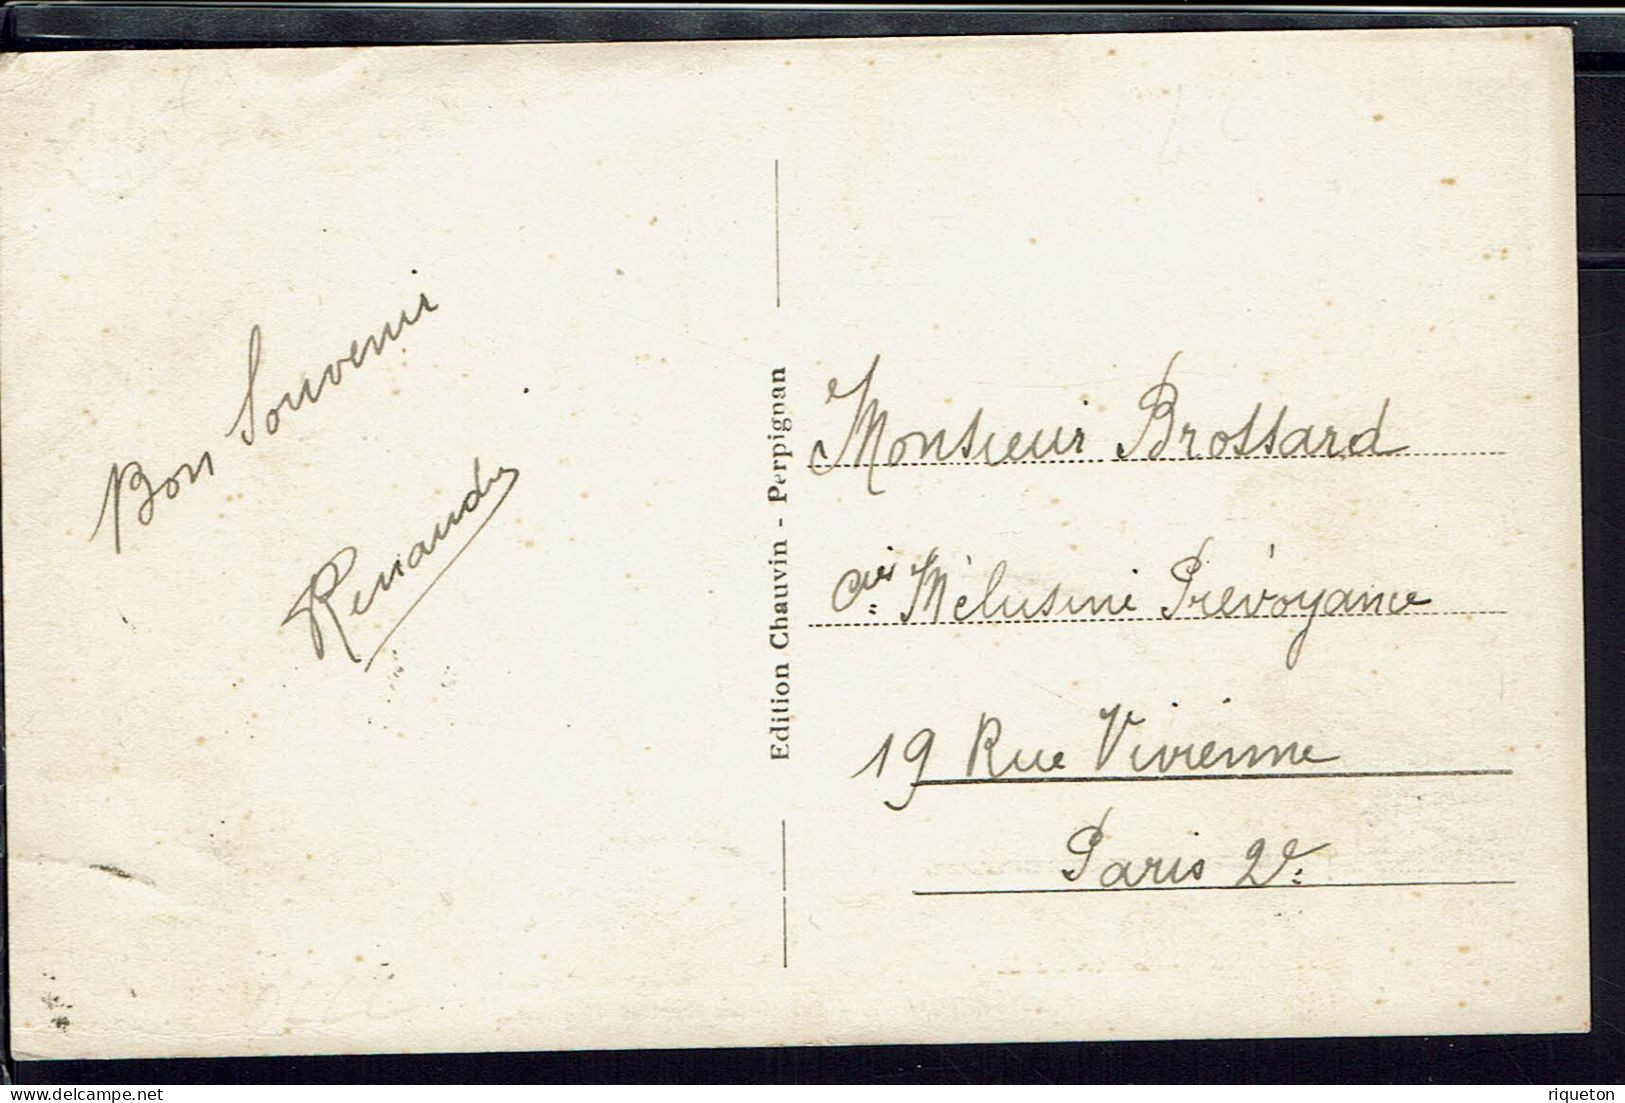 Bon Souvenir
Renaudy
Edition Chauvin - Perpignan
Monsieur Brossard
Cies Mélusine Prévoyance
19 Rue Vivienne
Paris 2e
riqueton